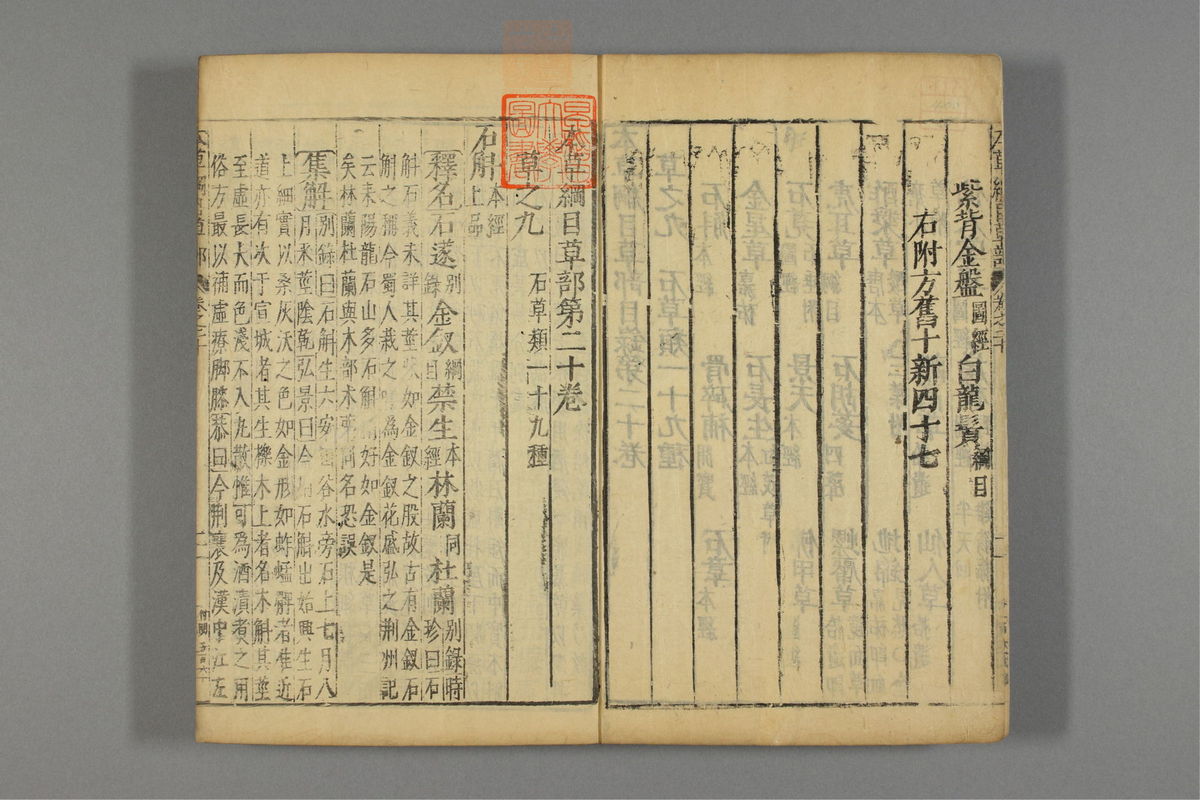 紫背金盤圖經 白龍鬚綱目
右附方舊十新四十七
本草綱目草部第二十卷
草之九 石草類一十九種
石斛本經上品
釋名石遂別錄金釵綱目禁生本經林蘭同杜蘭別錄時珍曰石
斛石義未詳其莖狀如金釵之股故古有金釵石
斛之稱今蜀人栽之呼為金釵花盛弘之荊州記
云耒陽龍石山多石斛精好如金釵是
矣林蘭杜蘭與木部木蘭同名恐誤
集解別錄曰石斛生六安山谷水旁石上七月八
月采莖陰乾弘景曰今用石斛出始興生石
上細實以桑灰沃之色如金形如蚱蜢髀者佳近
道亦有次于宣城者其生櫟木上者名木斛其莖
至虛長大而色淺不入丸散惟可為酒漬煑之用
俗方最以補虛療脚膝恭曰今荊襄及漢中江左